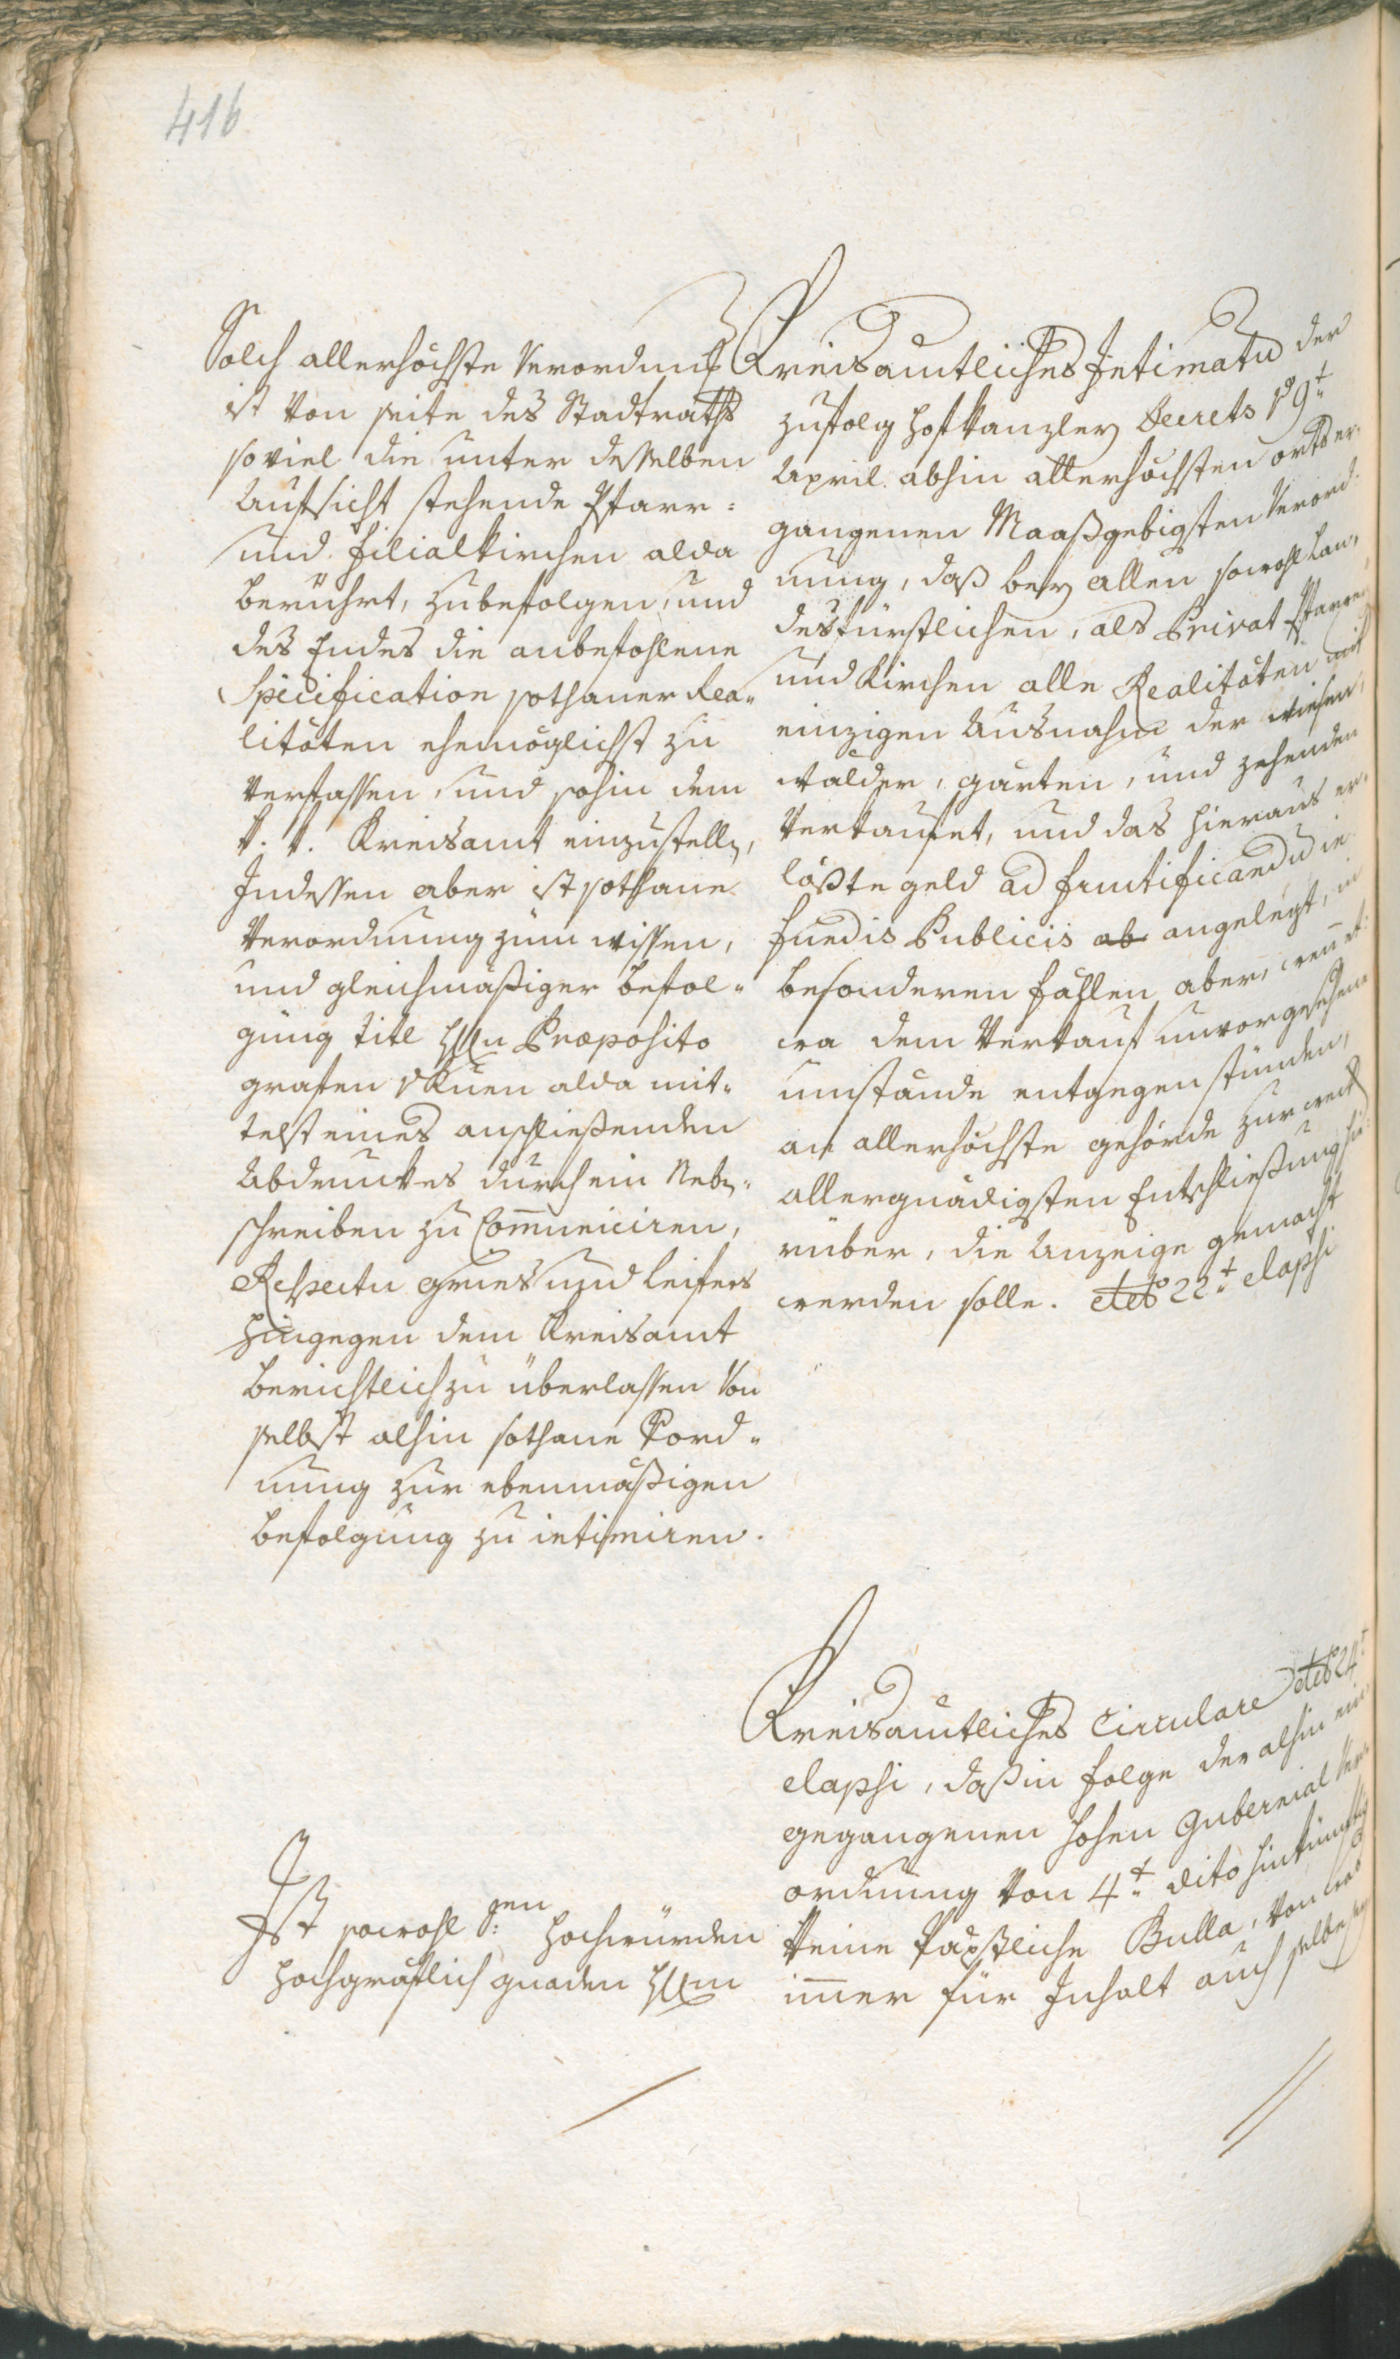 416
Solch allerhöchste Verordnung
ist von seite des Stadtraths
so viel die unter desselben
Aufsicht stehende Pfarr-
und Filialkirchen alda
berührt, zubefolgen, und
des Endes die anbefohlene
Specification sothaner Rea-
litäten ehemöglichst zu
verfassen, und sohin dem
k. k. Kreisamt einzustellen,
Indessen aber ist sothane
Verordnung zum wissen,
und gleichmäßiger befol-
gung titl Herrn Præposito
grafen v Kuen alda mit-
telst eines anschließenden
Abdruckes durch ein Neben-
schreiben zu Communiciren,
Respectu Gries und Leifers
hingegen dem Kreisamt
berichtlich zu überlassen von
selbst alhin sothane Verord-
nung zur ebenmäßigen
befolgung zu intimiren.
Ist sowohl Sr. hochwürden
hochgräflich gnaden Herrn
Kreisamtliches Intimatum der
zufolg Hofkanzley Decrets v 9t
April abhin allerhöchsten orts er-
gangenen Maaßgebigsten Verord-
nung, daß bey allen sowohl Lan-
desfürstlichen, als Privat Pfarren
und Kirchen alle Realitäten mit
einzigen Ausnahm der wiesen,
wälder, gärten, und zehenden
verkaufet, und das hieraus er-
lößte geld ad fructificandum in
fundis Publicis ab angelegt, in
besonderen fählen aber, wenn et-
wa dem Verkauf unvorgesehene
umstände entgegen stünden,
an allerhöchste gehörde zur
allergnädigsten Entschließung hie-
rüber, die Anzeige gemacht
werden solle. dto 22t elapsi
Kreisamtliches Circulare dto 24t
elapsi, daß in folge der alhin ein-
gegangenen hohen Gubernial Ver-
ordnung von 4t dito hinkünftig
keine Päpstliche Bulla, von was
immer für Inhalt auch selbe